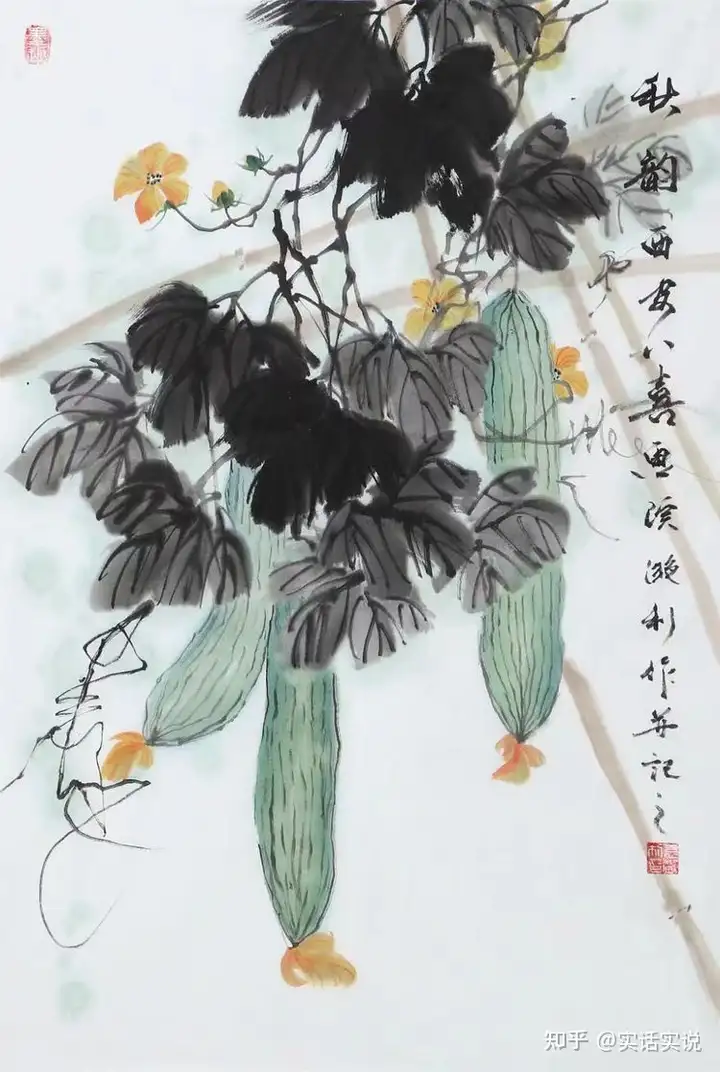 秋韵西安八喜画院利作并记之
知乎 @实话实说